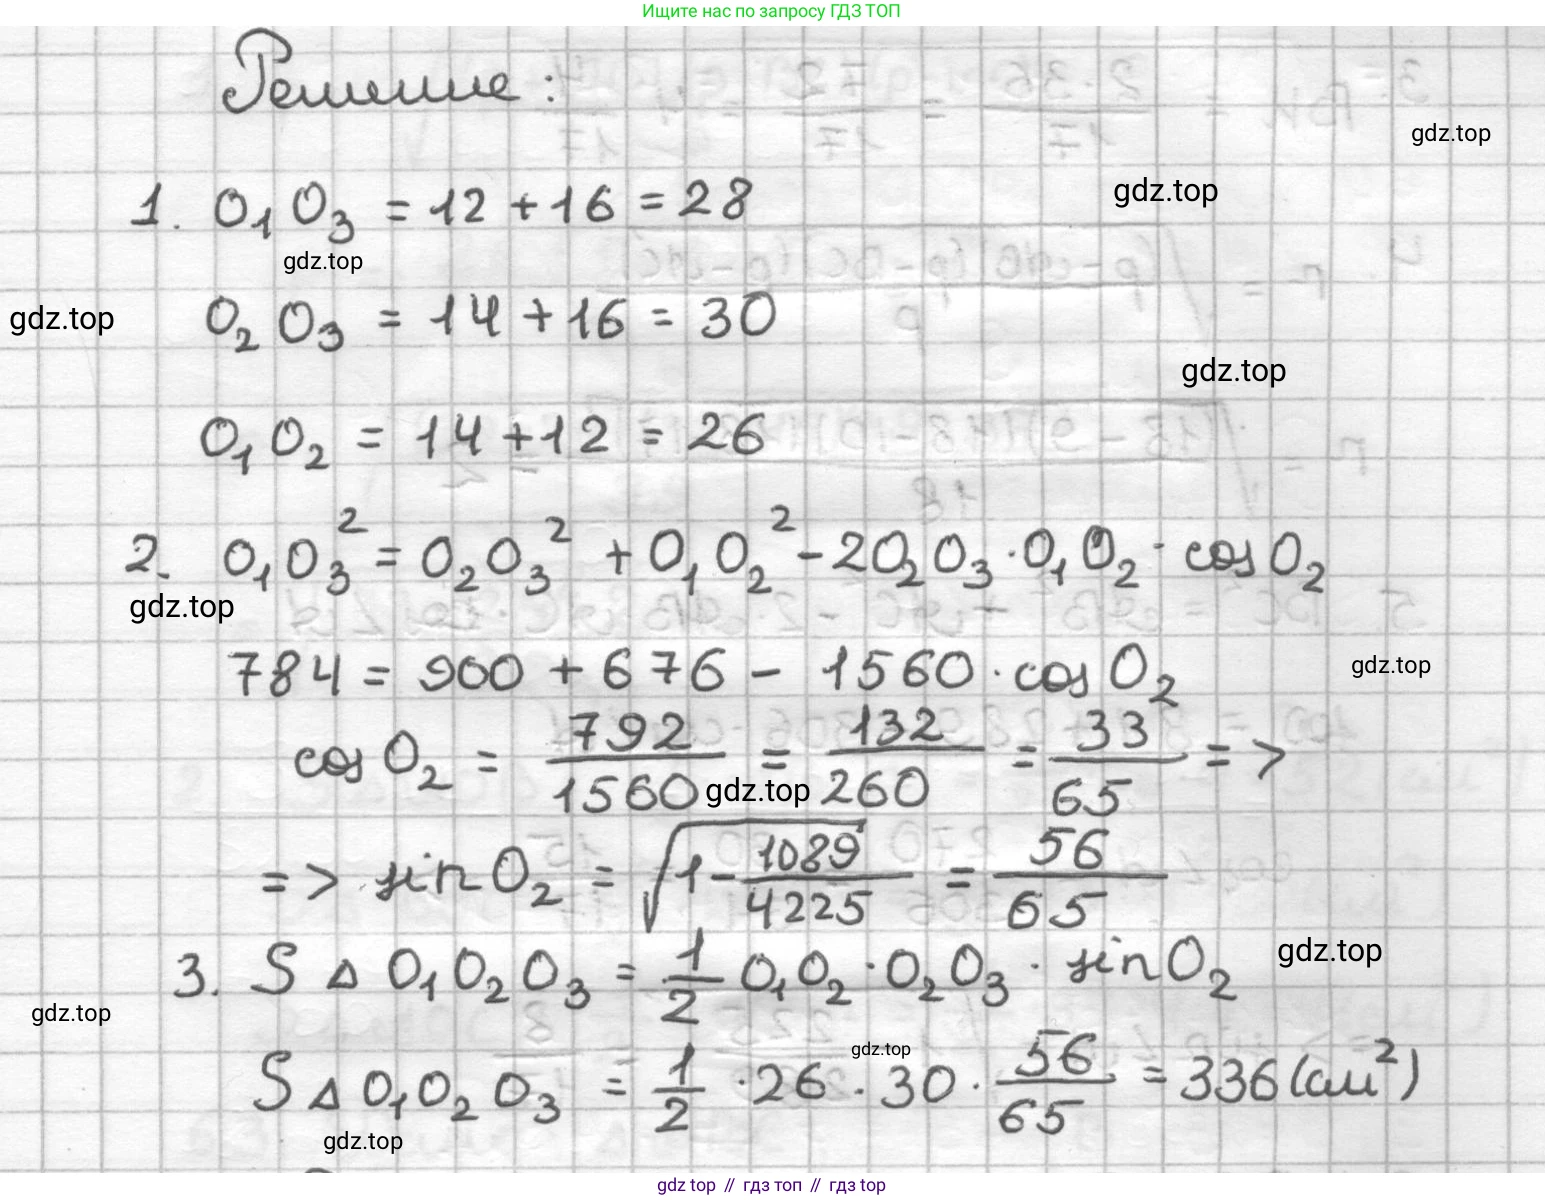 Ищите нас по запросу ГДЗ ТОП
Решение:
gdz.top
gdz.top
1. O₁O₃ = 12 + 16 = 28
gdz.top
gdz.top
O₂O₃ = 14 + 16 = 30
gdz.top
O₁O₂ = 14 + 12 = 26
2. O₁O₃² = O₂O₃² + O₁O₂² - 2O₂O₃ · O₁O₂ · cos O₂
gdz.top
784 = 900 + 676 - 1560 · cos O₂
gdz.top
cos O₂ = 792/1560 = 132/260 = 33/65 =>
gdz.top
=> sin O₂ = √(1 - 1089/4225) = 56/65
3. S △ O₁O₂O₃ = 1/2 O₁O₂ · O₂O₃ · sin O₂
gdz.top
gdz.top
gdz.top
S △ O₁O₂O₃ = 1/2 · 26 · 30 · 56/65 = 336 (см²)
gdz.top
gdz top // гдз топ // гдз top